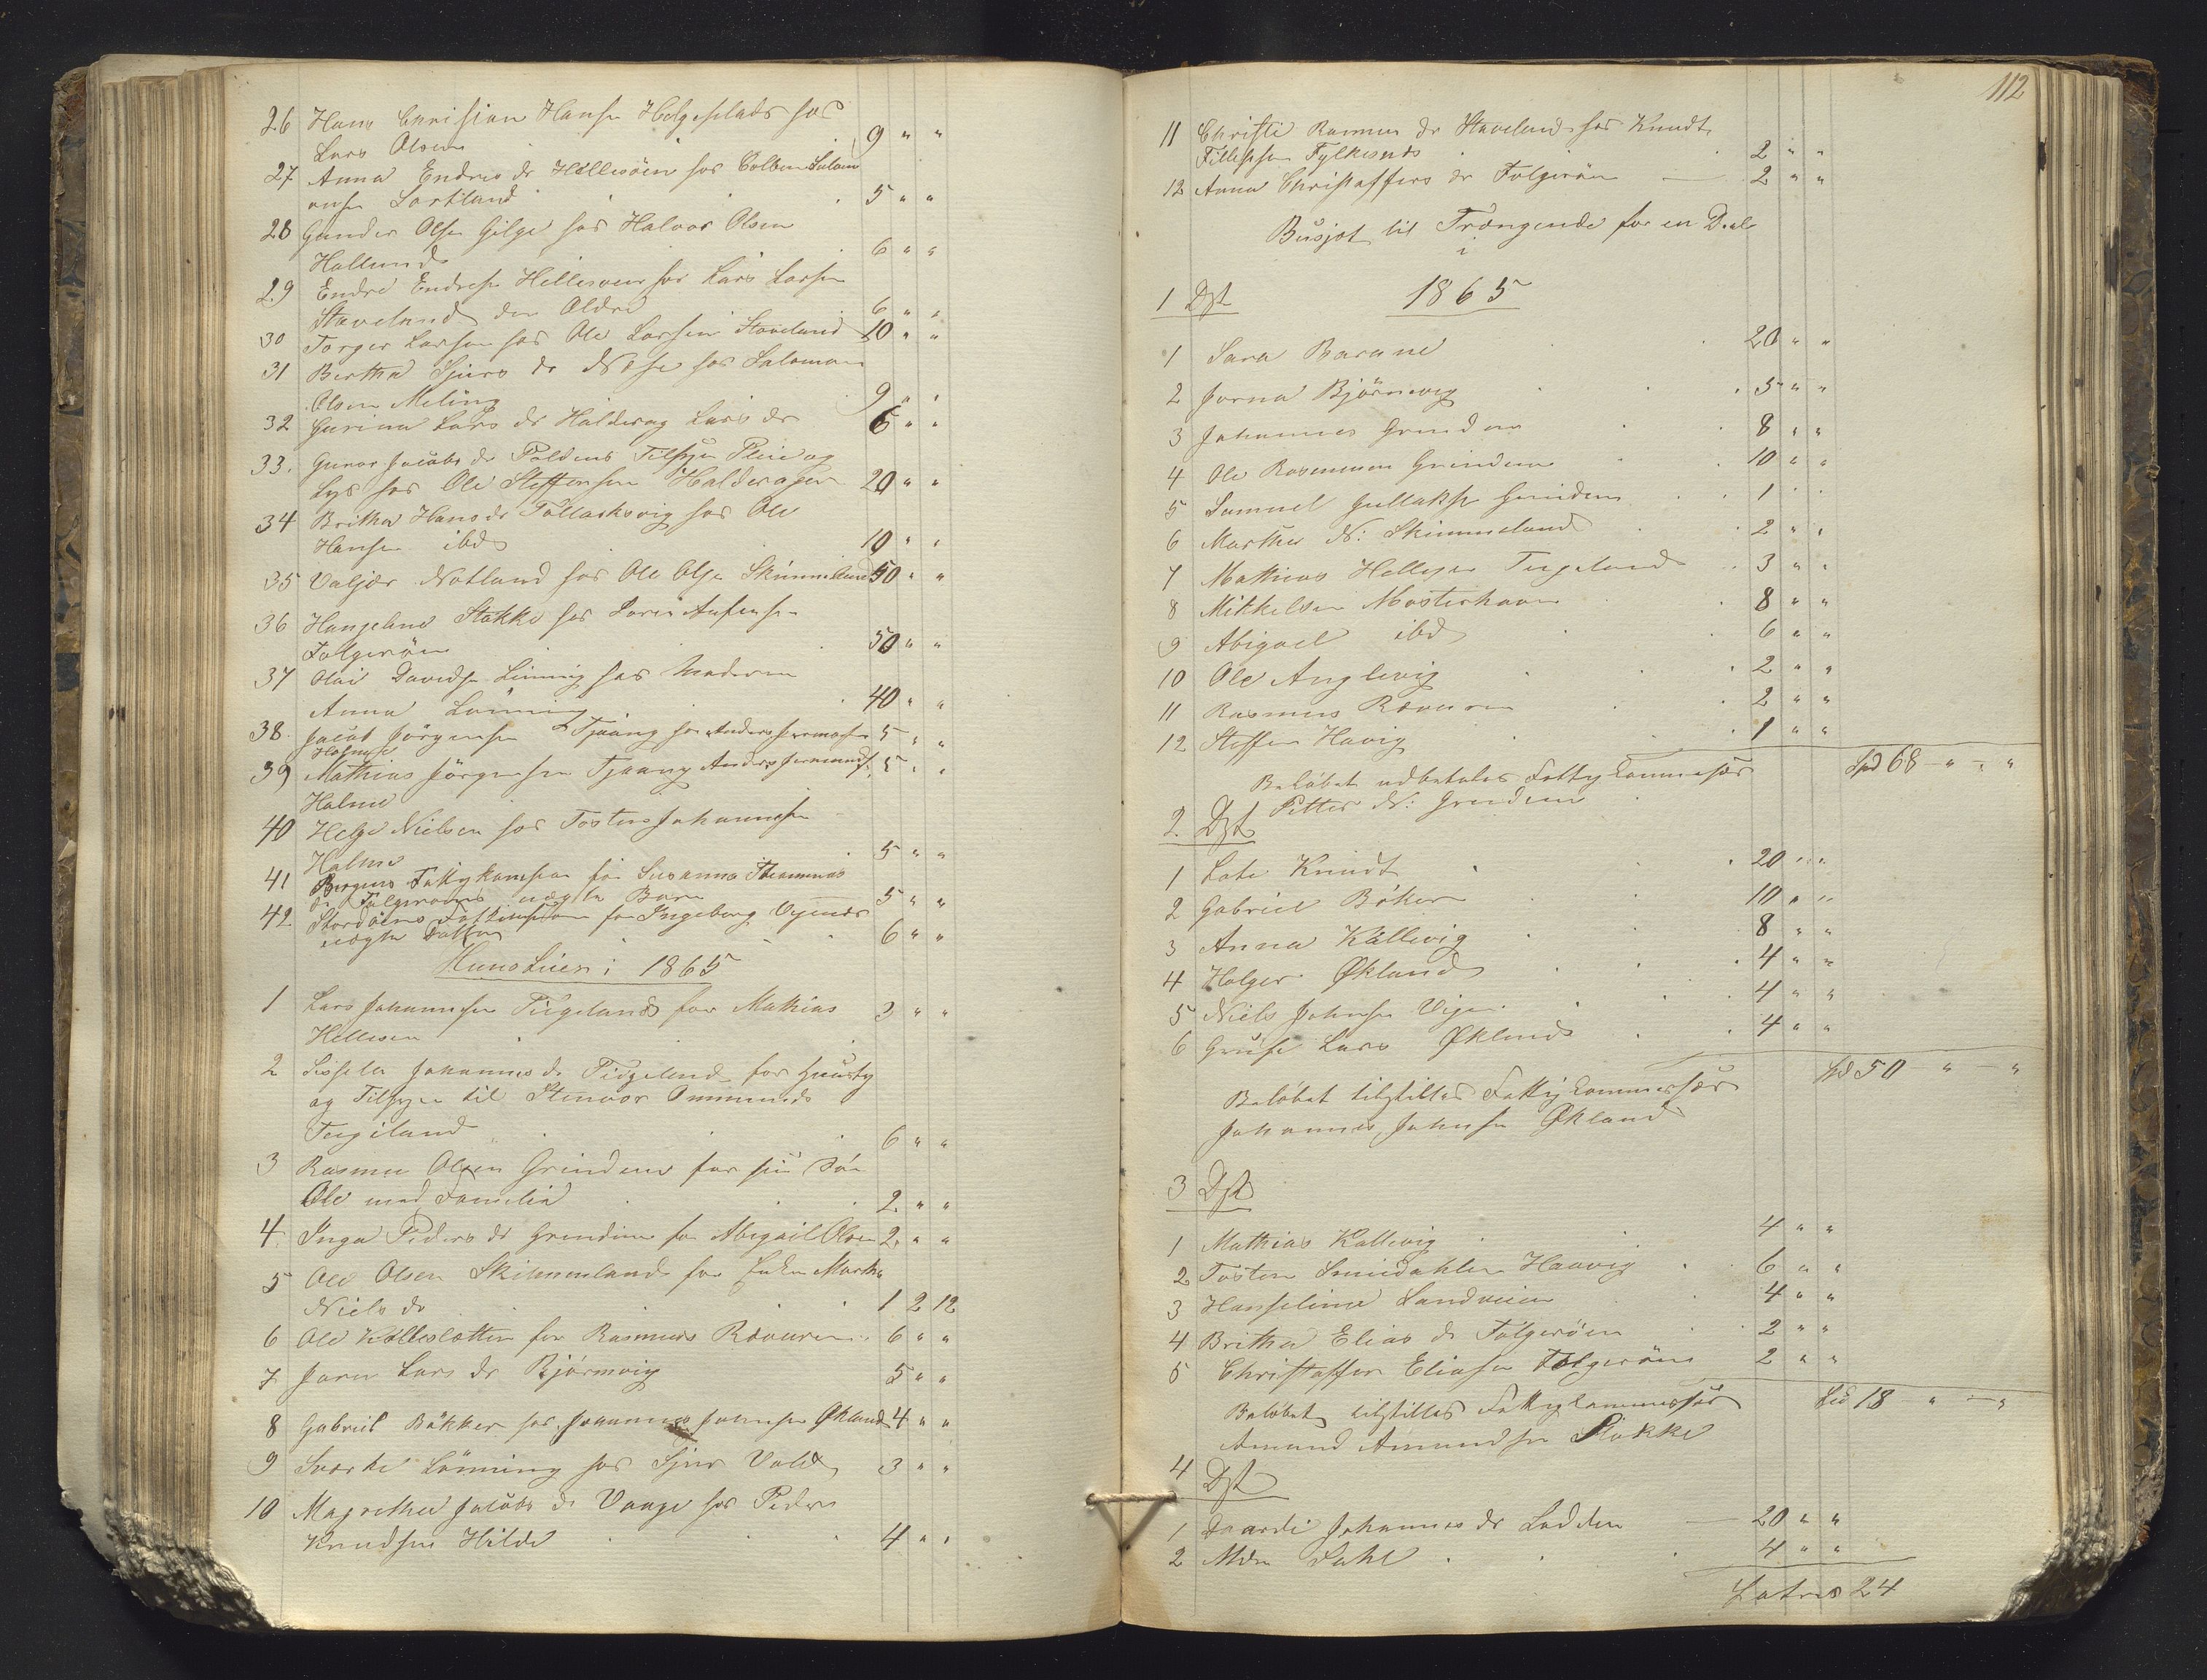 26 Hans Christian Hansen Helgeplads hos
Lars Olsen 9 " "
27 Anna Endres dr Hillesöien hos Colben Salom
onsen Sortland 5 " "
28 Gunder Olsen Gilje hos Halvor Olsen
Hallund 6 " "
29 Endre Endresen Hillesöien hos Lars Larsen
Staveland den Ældre 6 " "
30 Torger Larsen hos Ole Larsen Staveland 10 " "
31 Bertha Sjurs dr Næse hos Salomon
Olsen Meling 9 " "
32 Gurina Lars dr Haldorag Lars dr 6 " "
33. Gunor Jacobs dr Foldens Tilsyn Pleie og
Lys hos Ole Steffensen Halderagen 20 " "
34 Britha Hans dr Tollaksvig hos Ole
Hansen ibd 10 " "
35 Valjær Notland hos Ole Olsen Skimmeland 50 " "
36 Hanseline Stokke hos Soren Aufinsen
Folgeröen 50 " "
37 Olai Davidsen Lönning hos Moderen
Anna Lönning 40 " "
38. Jacob Jörgensen Tjöang hos Anders Jermosen 5 " "
Holme
39 Mathias Jörgensen Tjoang Anders Jermunds. 5 " "
Holme
40 Helge Nielsen hos Tosten Johannesen
Holme 5 " "
41 Bergens Fattigkomision for Susanna Thommas
dr Folgeröens uægte Barn 5 " "
42. Stordöens Fattikomision for Ingeborg Vejnæs
uægte Datter 6 " "
Huusleien i 1865
1 Lars Johannesen Tiigeland for Mathias 3 " "
Hellesen
2 Sissela Johannes dr Tiigeland for Huusly
og Tilsyn til Stenvor Ommunds
Tiigeland 6 " "
3 Rasmus Olsen Grindem for sin Sön
Ole med Familie 2. " "
4 Inga Peders dr Grindem for Abigail Olsen 2. " "
5 Ole Olsen Skimmeland for Enken Martha
Niels dr 1 2 12
6 Ole Kalleslætten for Rasmus Rævuren 6 " "
7 Joren Lars dr Björnevig 5 " "
8 Gabriel Bökker hos Johannes Johnsen Økland 4 " "
9 Sverke Lönning hos Sjur Vold 3 " "
10 Magrethe Jacobs dr Vaage hos Peder
Knudsen Hilde 4 " "
112
11 Christi Rasmus dr Staveland hos Knudt
Fillipsen Fylkesnæs 2 " "
12 Anna Christoffers dr Folgeröen 2 " "
Busjet til Trængende for en Deel
i
1 Dgt 1865
1 Sara Barane 20 " "
2 Jorna Björnevig 5 " "
3 Johannes Grindem 8 " "
4 Ole Rasmussen Grindem 10 " "
5 Samuel Gullaksen Grindem 1 " "
6 Martha N: Skimmeland 2 " "
7 Mathias Hellesen Tiigeland 3 " "
8 Mikkelsen Mosterhavn 8 " "
9 Abigael ibd 6 " "
10 Ole Anglevig 2 " "
11 Rasmus Rævuren 2 " "
12 Steffen Havig 1 " "
Spd 68 - " - "
Belöbet udbetales Fattigkommesær
Petter N: Grindem
2. Dgt
1 Late Knudt 20 " "
2 Gabriel Böker 10 " "
3 Anna Källevig 8 " "
4 Holger Økland 4 " "
5 Niels Johnsen Vigen 4 " "
6 Gruse Lars Økland 4 " "
Spd 50 - " - "
Belöbet tilstilles Fattigkommessær
Johannes Johnsen Økland
3 Dgt
1 Mathias Kallevig 4 " "
2 Tosten Smedahlen Haavig 6 " "
3 Hanseline Sandveien 4 " "
4 Britha Elias dr Folgeröen 2 " "
5 Christoffer Eliasen Folgeröen 2 " "
Spd 18 - " - "
Belöbet tilstilles Fattigkommessær
Amund Amundsen Stokke
4 Dgt
1 Johannes dr Ladden 20 " "
2 Mdm Dahl 4 " "
Latres 24